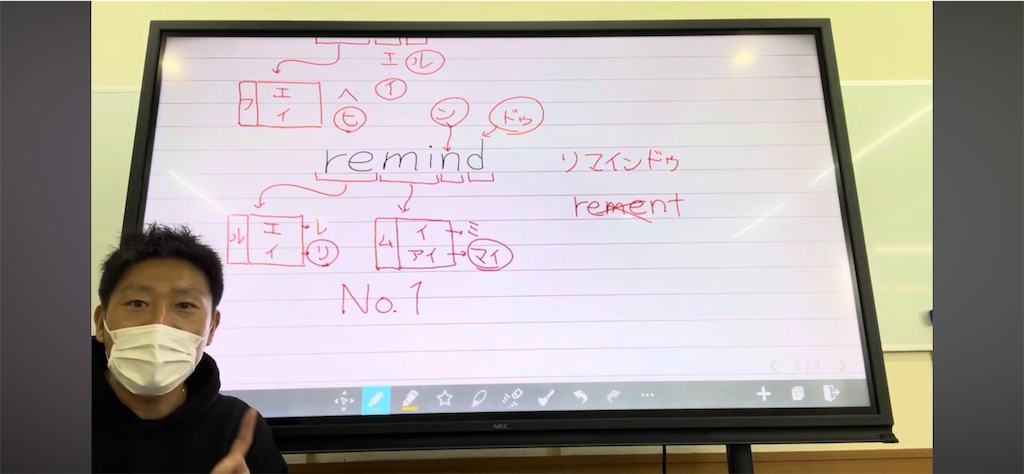 エル
フ エ ヘ イ
イ ヒ
ン ドゥ
remind リマインドゥ
rement
ル エ レ ム イ ミ
イ リ アイ マイ
No.1
1/3
NEC